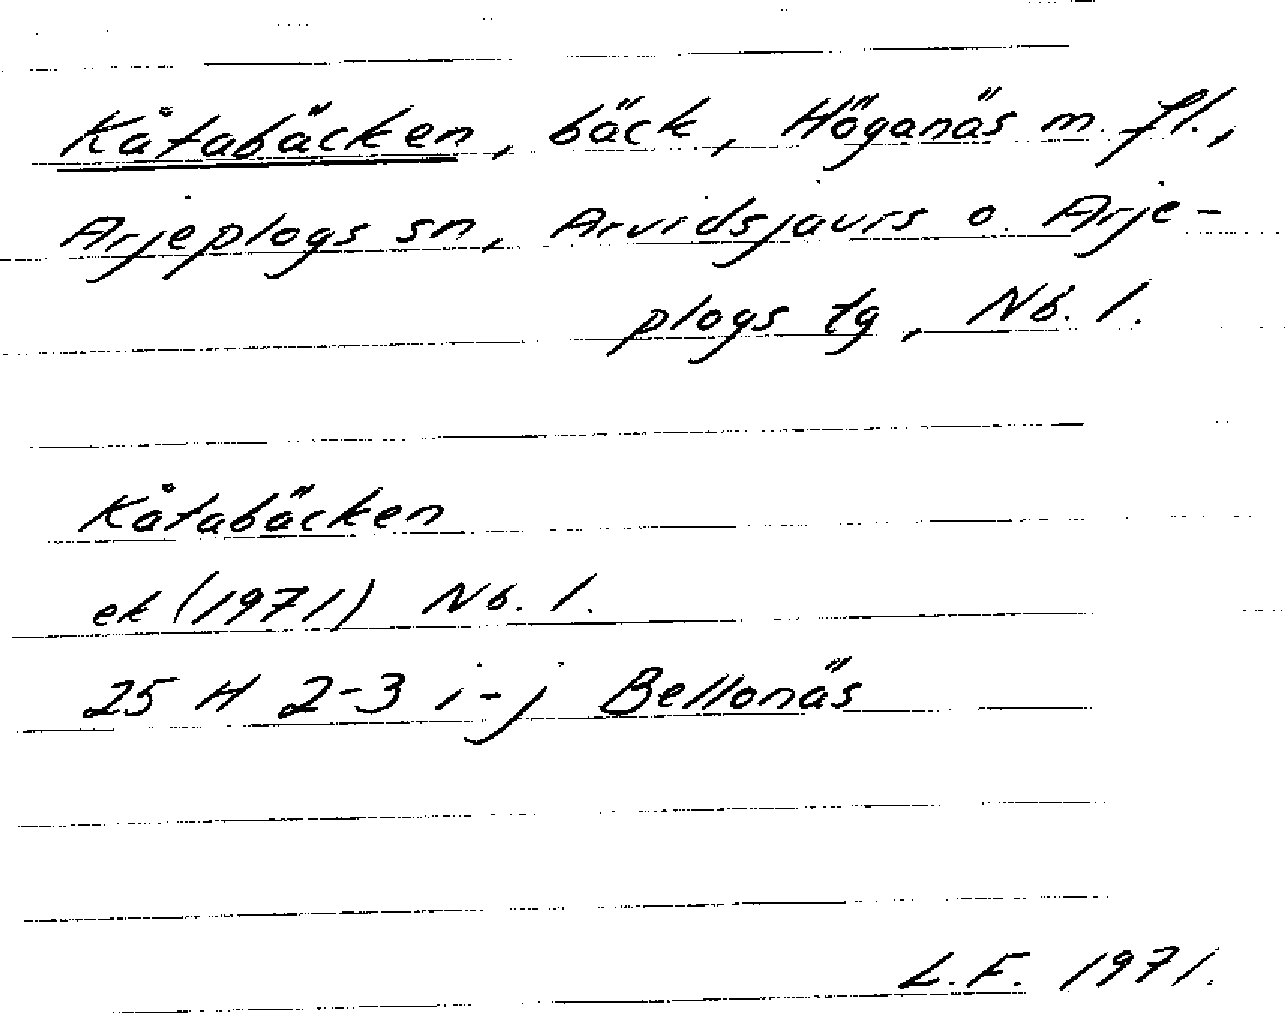 Kåtabäcken, bäck, Höganäs m. fl.,
Arjeplogs sn, Arvidsjaurs o. Arje-
plogs tg, Nb. l.
Kåtabäcken
ek (1971) Nb. l.
25 H 2-3 i-j Bellonäs
L.F. 1971.